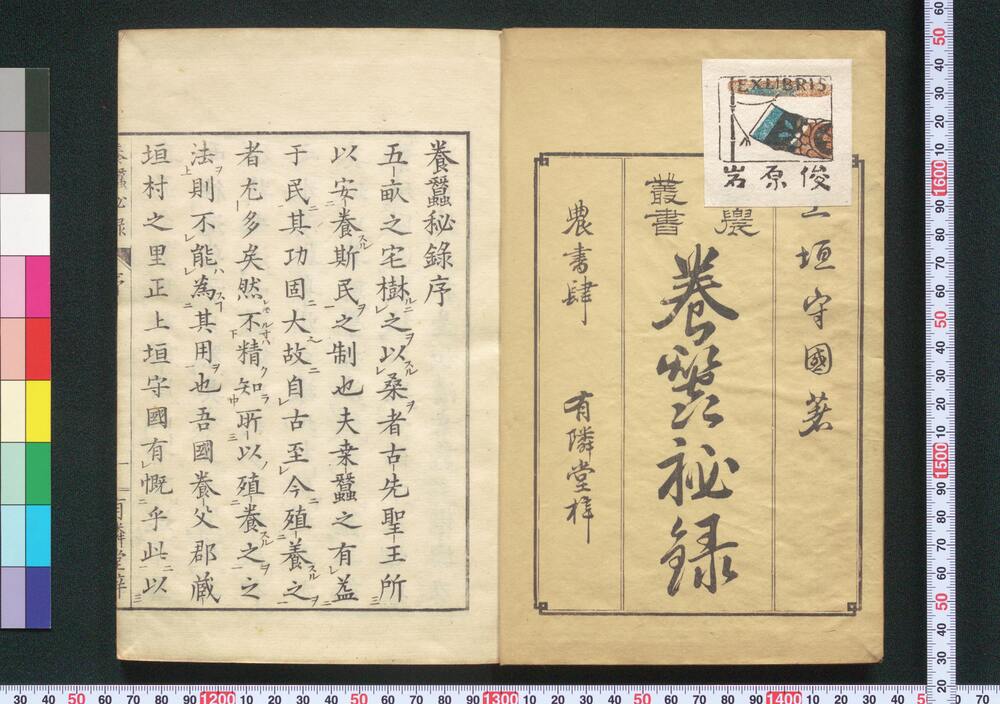 EXLIBRIS
岩原俊
上垣守國著
農
叢書
養蚕祕録
農書肆 有隣堂梓
養蠶秘錄序
五畝之宅樹之以桑者古先聖王所
以安養斯民之制也夫桒蠶之有益
于民其功固大故自古至今殖養之
者尤多矣然不精知所以殖養之之
法則不能為其用也吾國養父郡蔵
垣村之里正上垣守國有慨乎此以